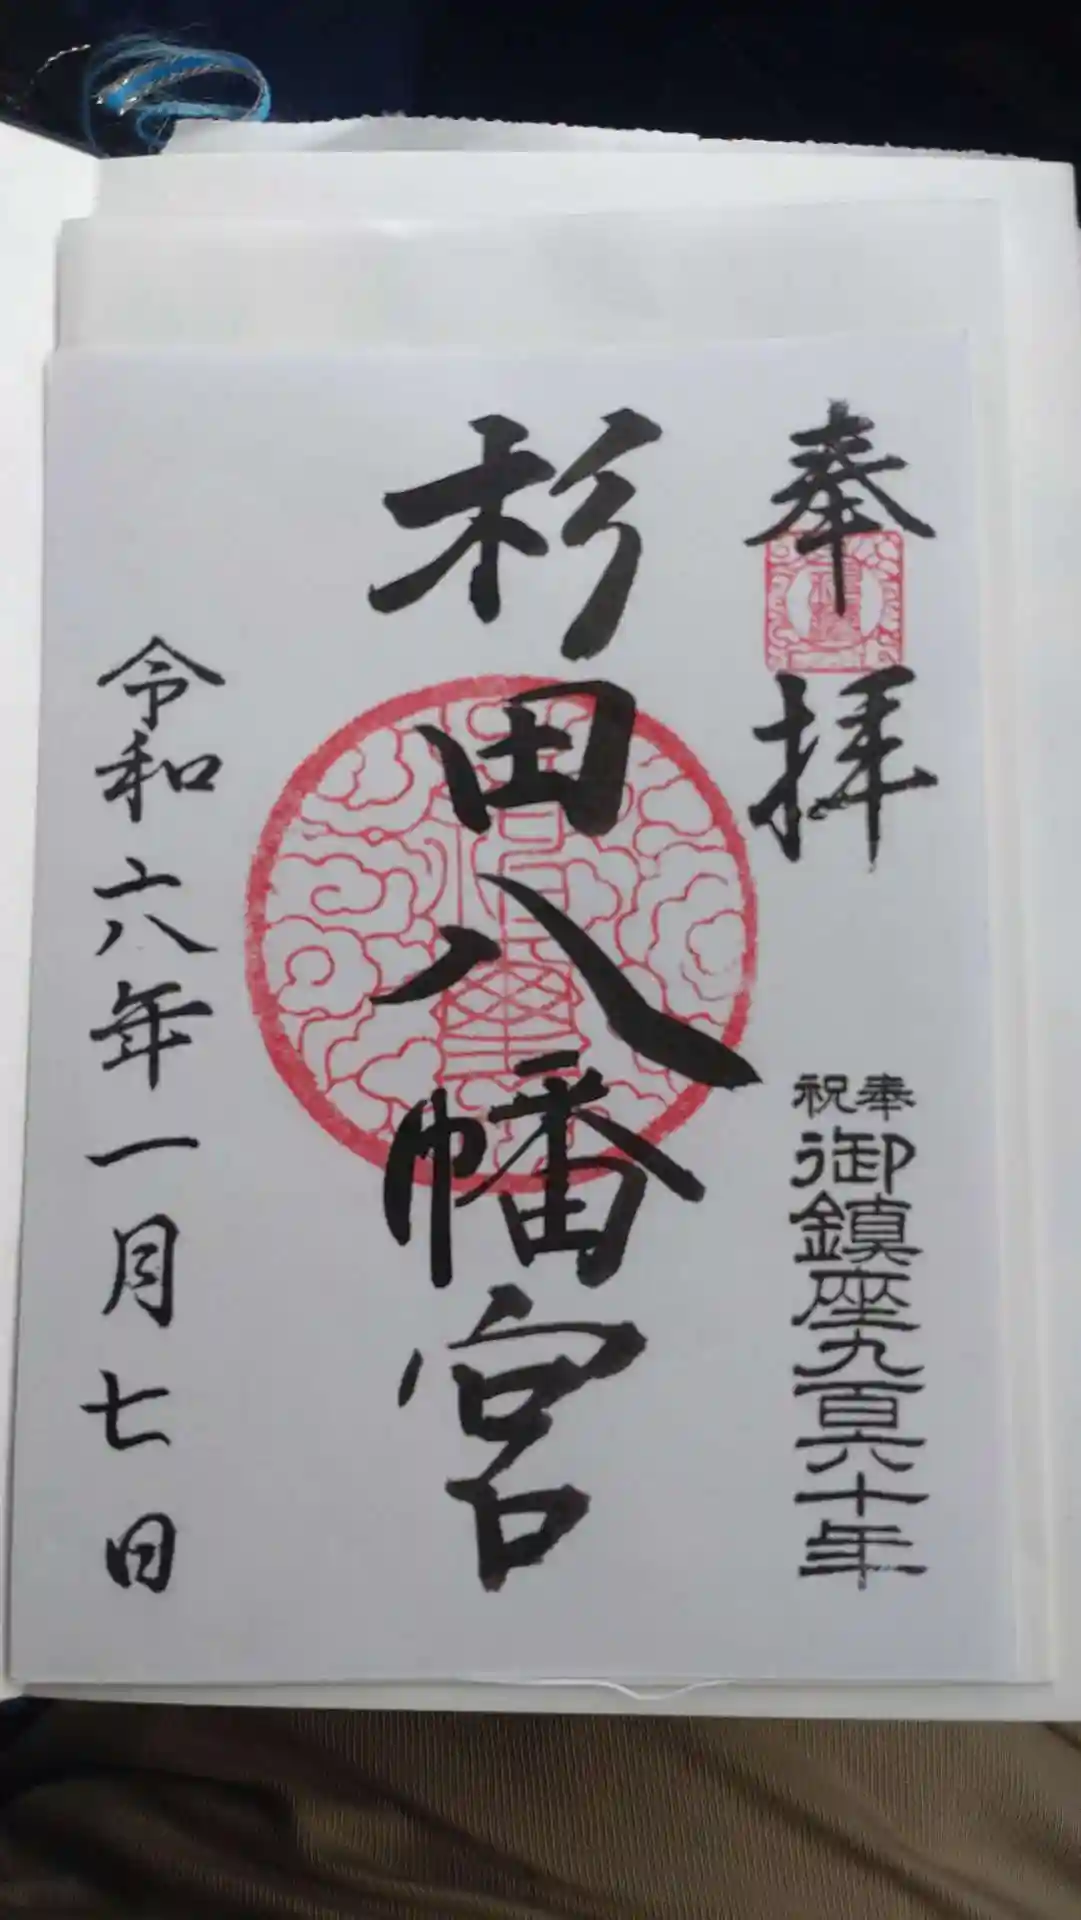 奉拝
奉祝
御鎮座九百六十年
杉田八幡宮
令和六年一月七日